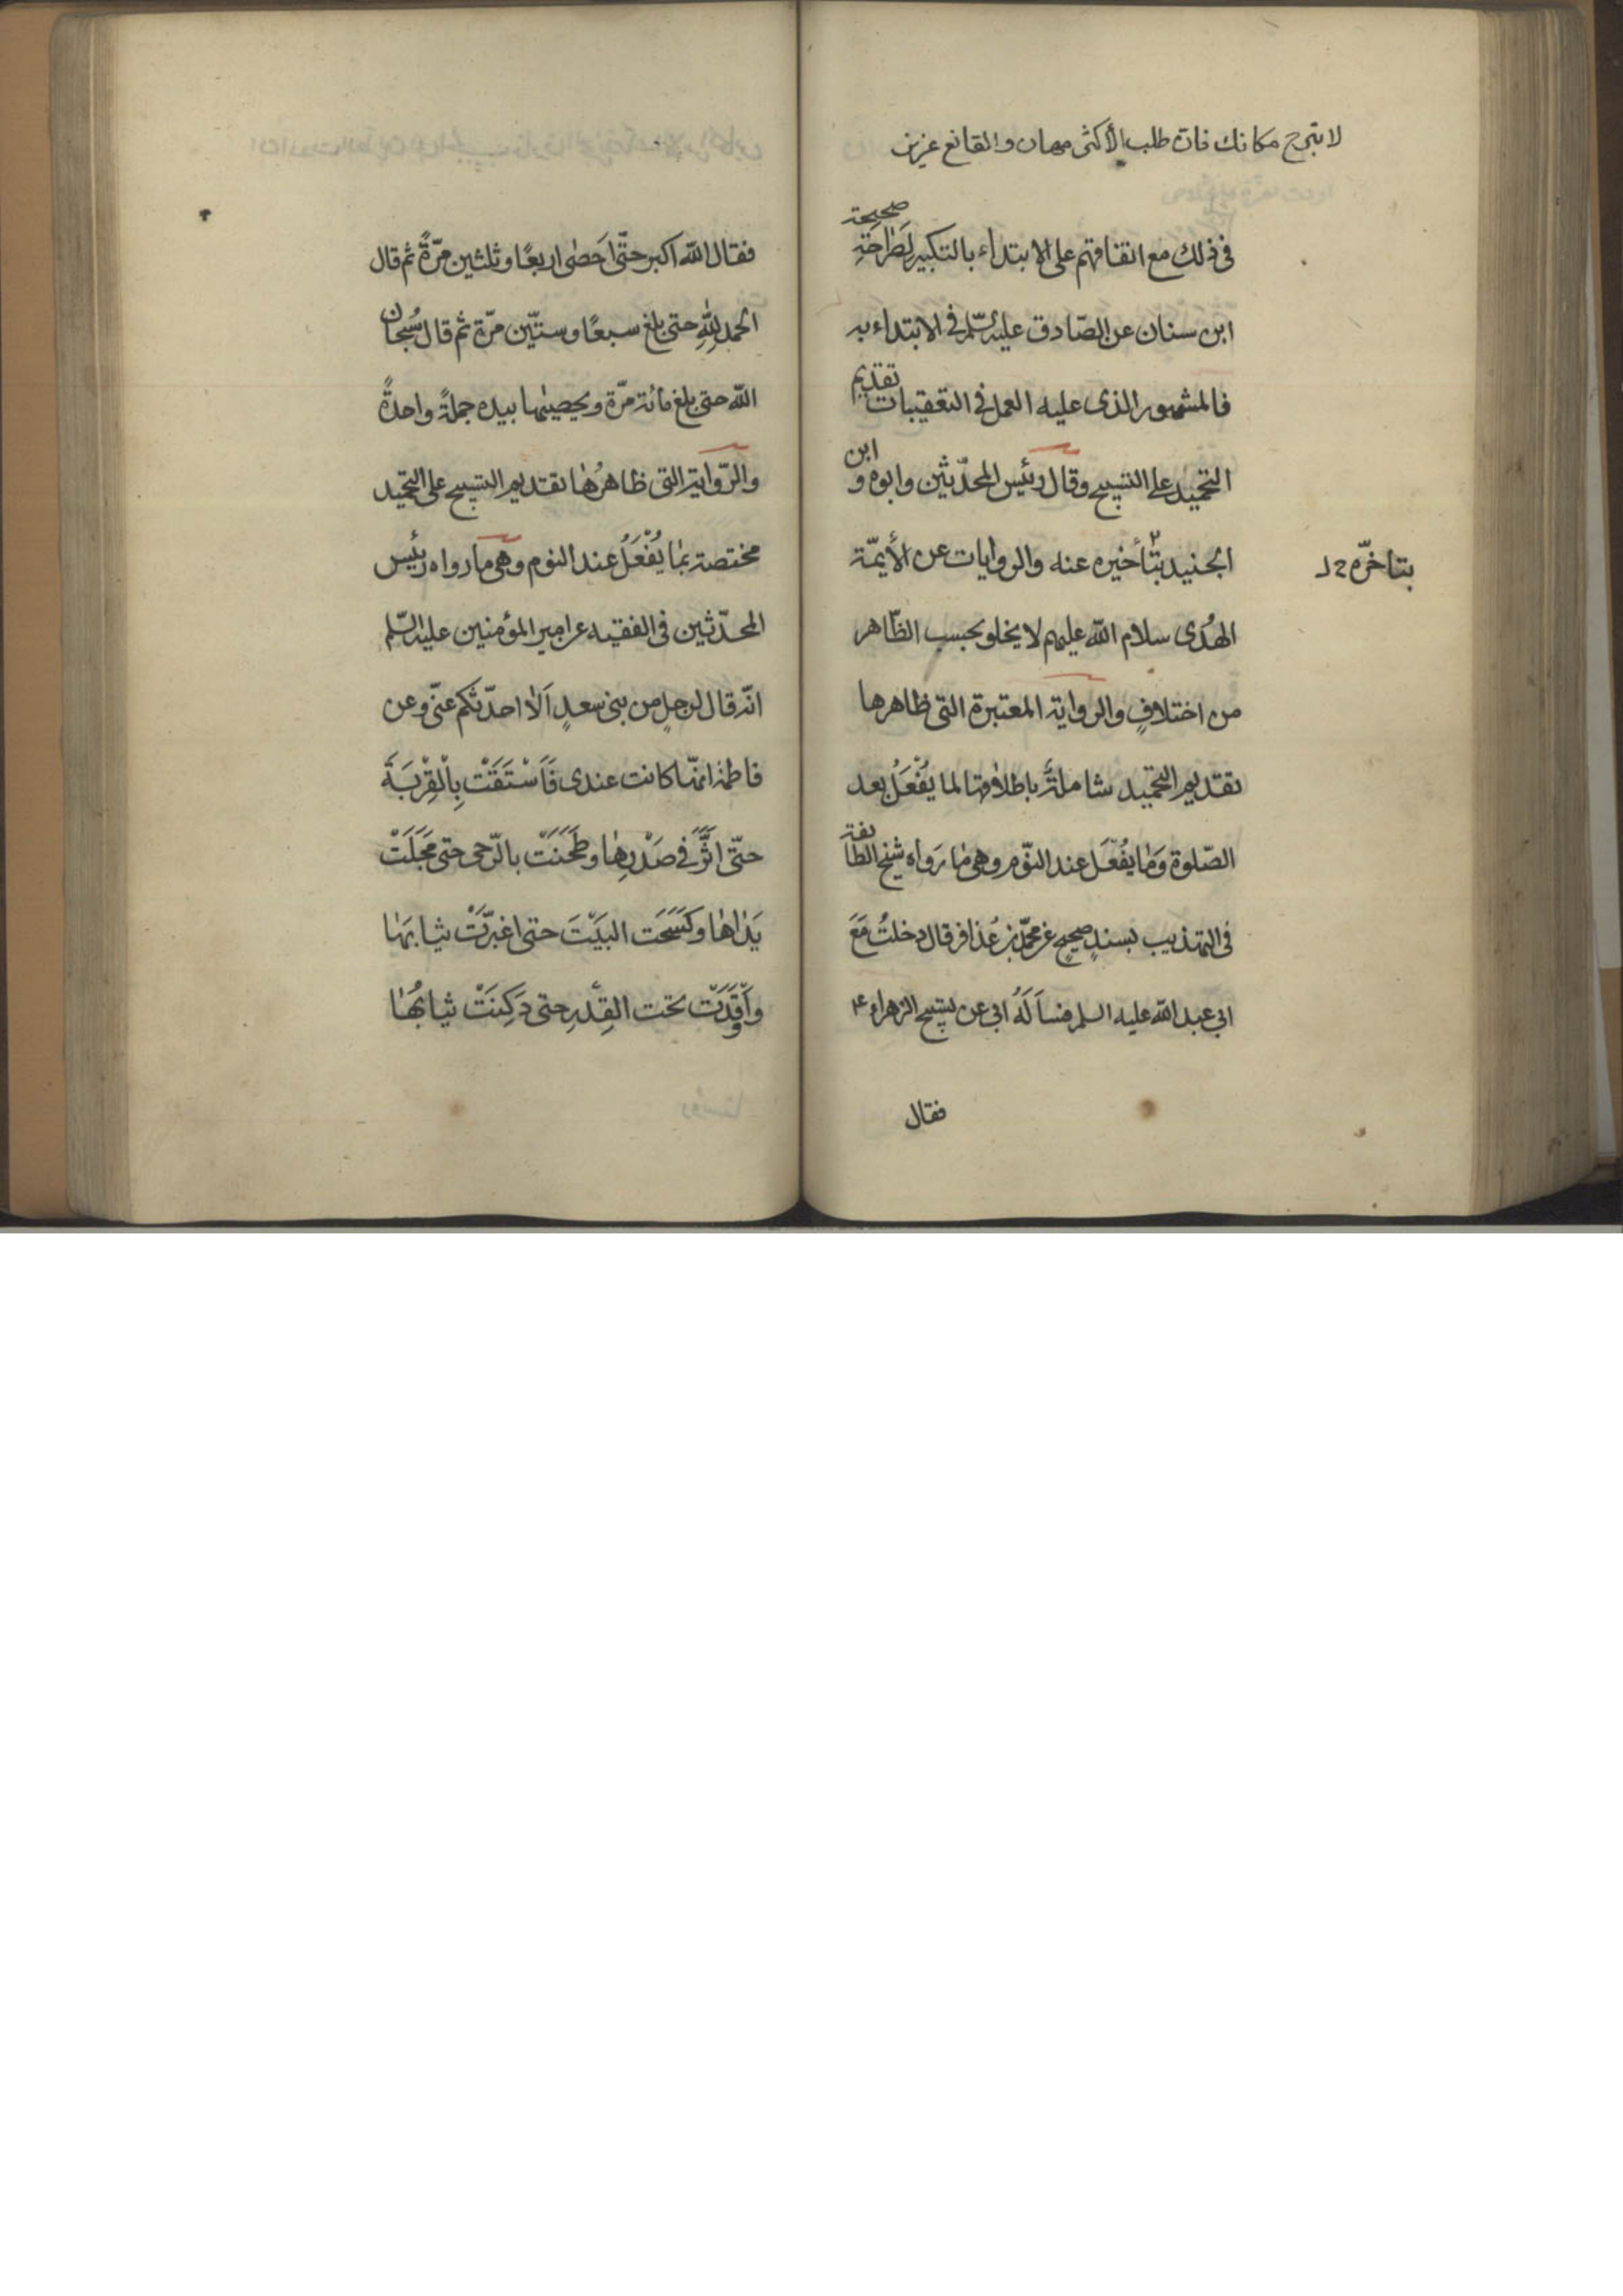 لا تبرح مكانك فان طلب الأكثر مهان والقانع عزيز
فى ذلك مع اتفاقهم على الابتداء بالتكبير لصراحة صحيحة
ابن سنان عن الصّادق عليه السّلم فى الابتداء به
فالمشهور الذى عليه العمل فى التعقيبات تقديم
التحميد على التسبيح وقال رئيس المحدّثين وابوه وابن
الجنيد بتأخيره عنه والروايات عن الأيمّة
بتاخّره
الهُدى سلام الله عليهم لا يخلو بحسب الظّاهر
من اختلافٍ والرواية المعتبرة التى ظاهرها
تقديم التحميد شاملةٌ باطلاقها لما يُفْعَلُ بعد
الصّلوة وَمٰا يفُعَل عند النّوم وهى مٰا رَواه شيخ الطائفة
فى التهذيب بسندٍ صحيحٍ عن محمّد بن عُذافر قال دخلتُ مَعَ
ابي عبد الله عليه السلم فسأَلَهُ ابي عن تسبيح الزهراء ع
فقال
فقال الله اكبر حتّى اَحصٰى اربعًا وثلثين مرّةً ثم قال
الحمد لِلّٰهِ حتى بلغ سبعًا وستّين مرّة ثم قال سُبحان
الله حتى بلغ مائة مرّة ويحصيها بيده جملةً واحدةً
والرّواية التى ظاهرُهٰا تقديم التسبيح على التحميد
مختصة بمٰا يُفْعَلُ عند النوم وهى ما رواه رئيس
المحدّثين فى الفقيه عن امير المؤمنين عليه السّلم
انّه قال لرجلٍ من بنى سعدٍ اَلاٰ احدّثكم عنّى وعن
فاطمة انّها كانت عندى فَاَسْتَقَتْ بِالْقِرْبَةَ
حتّى اثَّرَ فى صَدْرِهٰا وطَحَنَتْ بالرّحى حتى مَجَلَتْ
يَدٰاهٰا وكَسَحَت البَيْتَ حتى اغبرّتْ ثيابهٰا
وأَوْقَدَتْ تحت القِدْرِ حتى دَكِنَتْ ثيابُهٰا